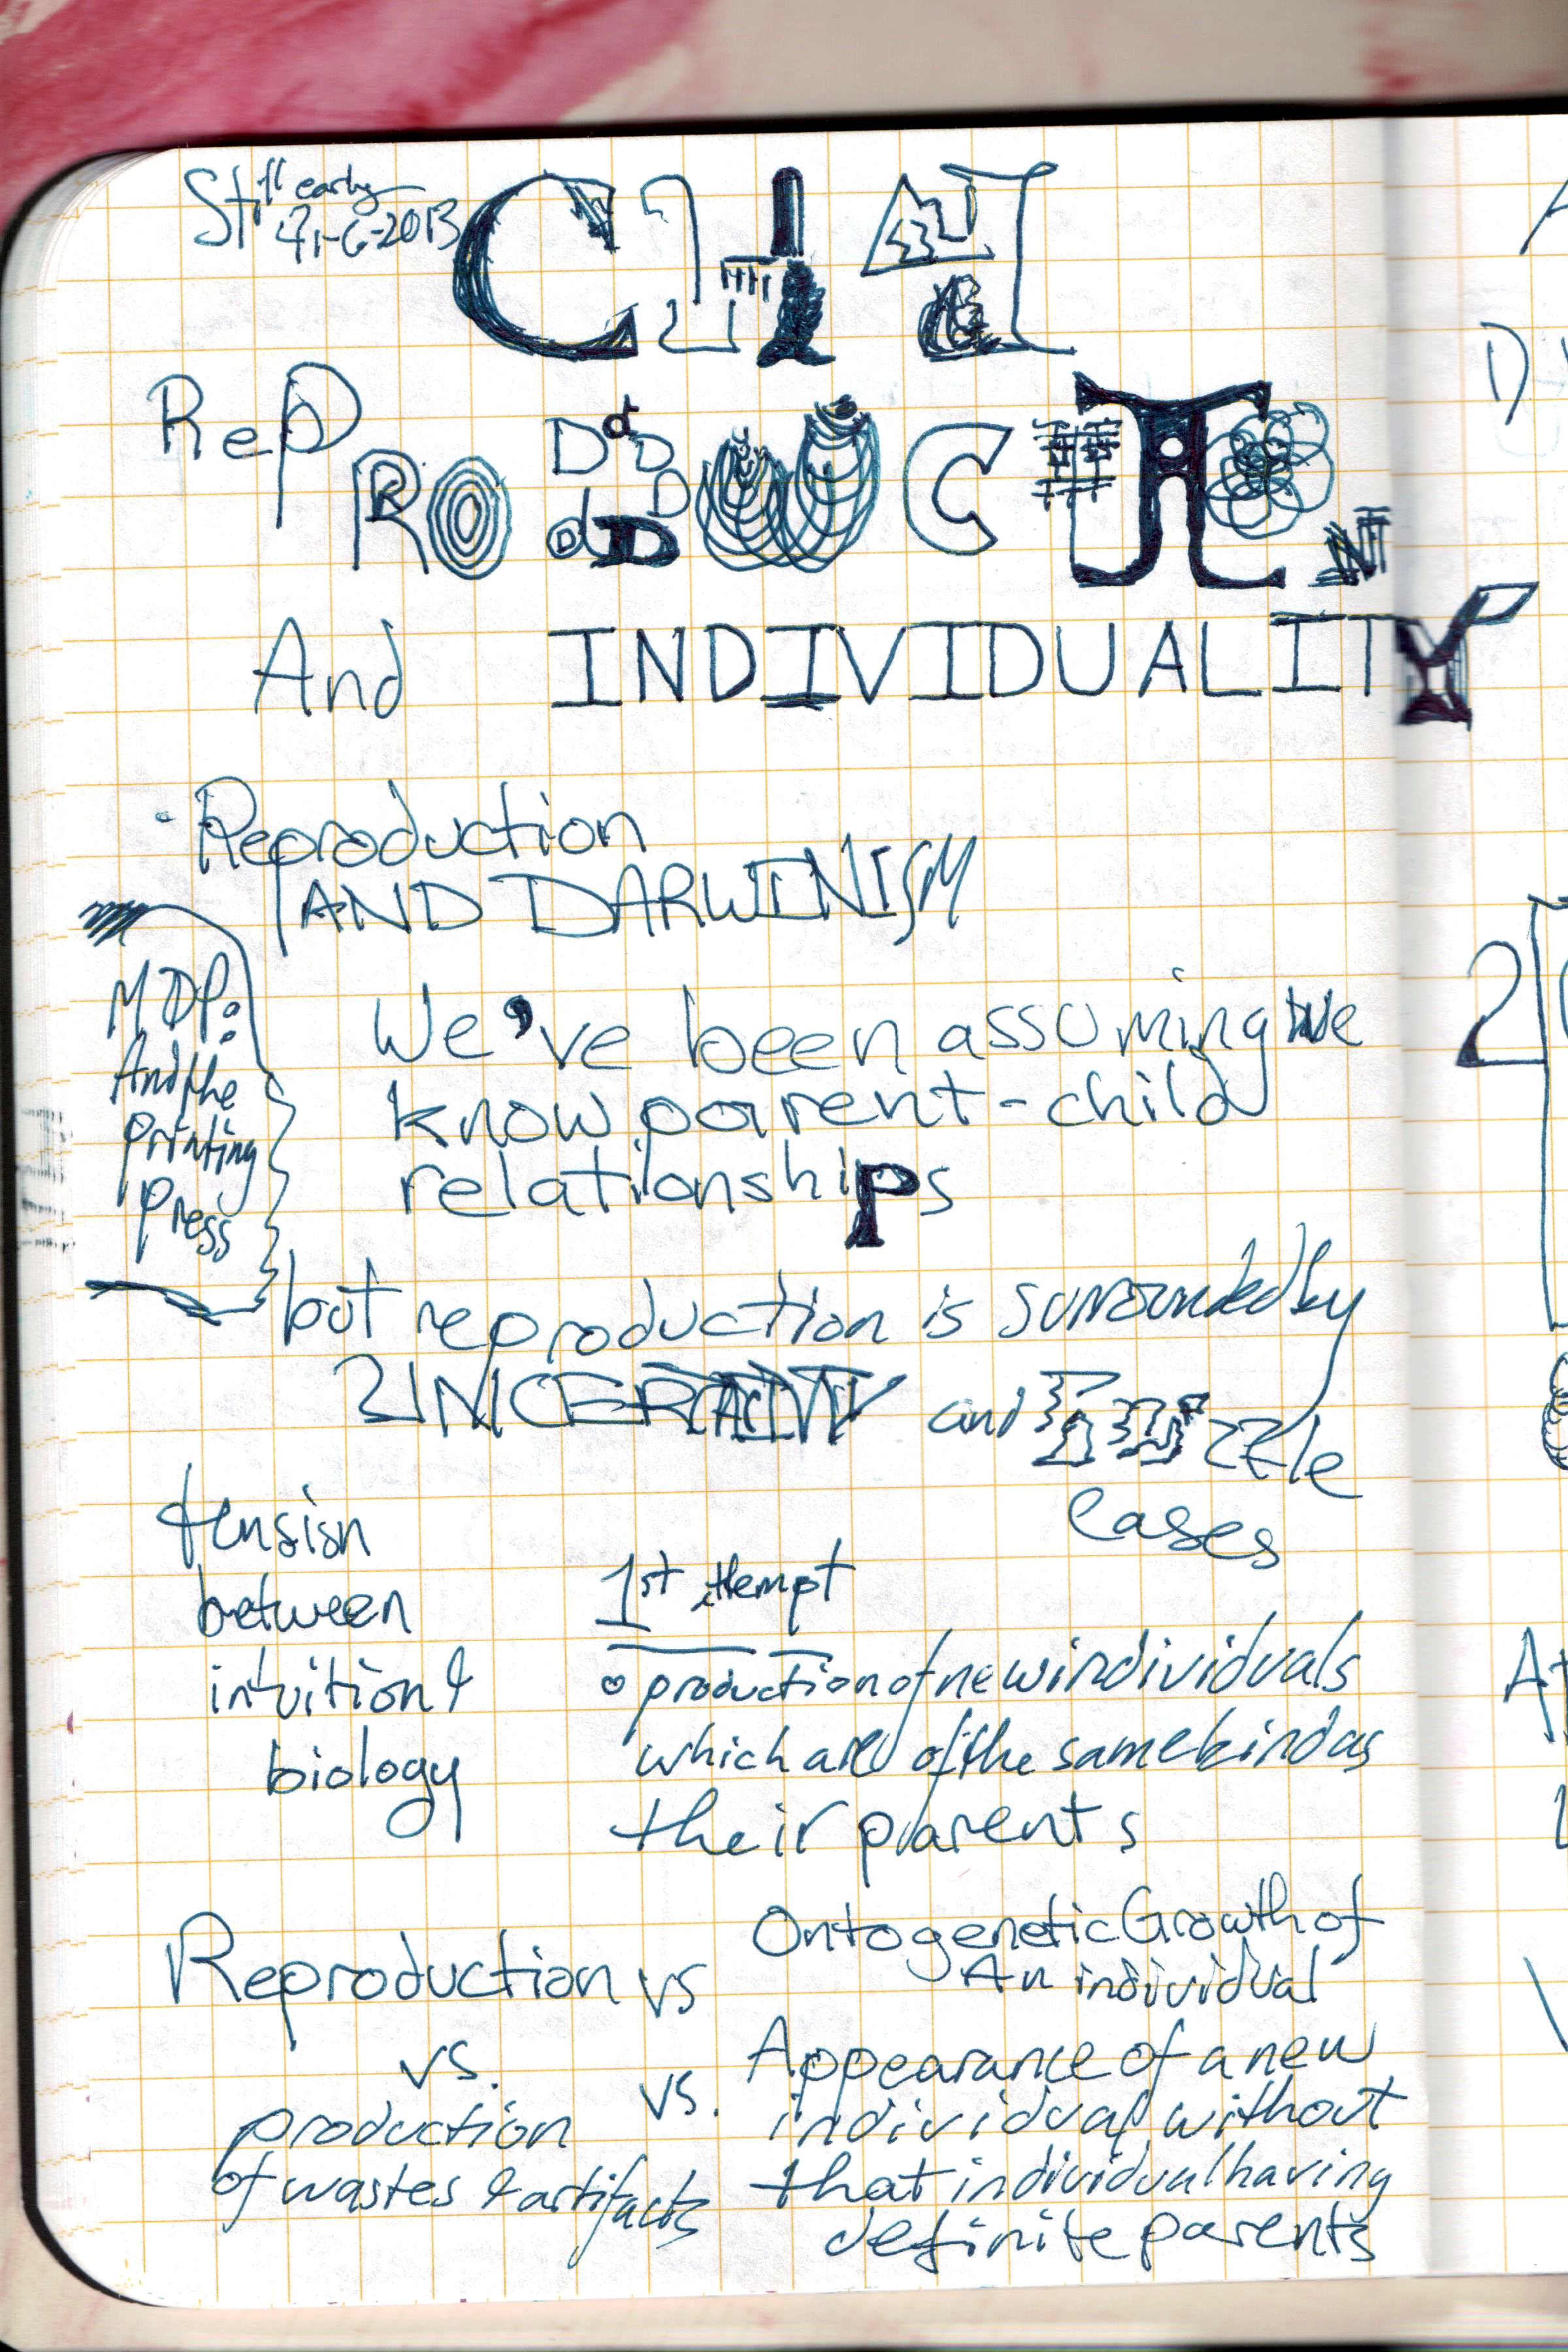 Still early
CH 4
RePRODUCTION
And INDIVIDUALITY
· Reproduction
AND DARWINISM
MDP:
And the
printing
press
We've been assuming we
know parent-child
relationships
but reproduction is surrounded by
UNCERTAINTY and PUZZLE
cases
tension
between
intuition &
biology
1st attempt
o production of new individuals
which are of the same kind as
their parents
Reproduction vs Ontogenetic Growth of
An individual
vs.
production
of wastes & artifacts
vs. Appearance of a new
individual without
that individual having
definite parents